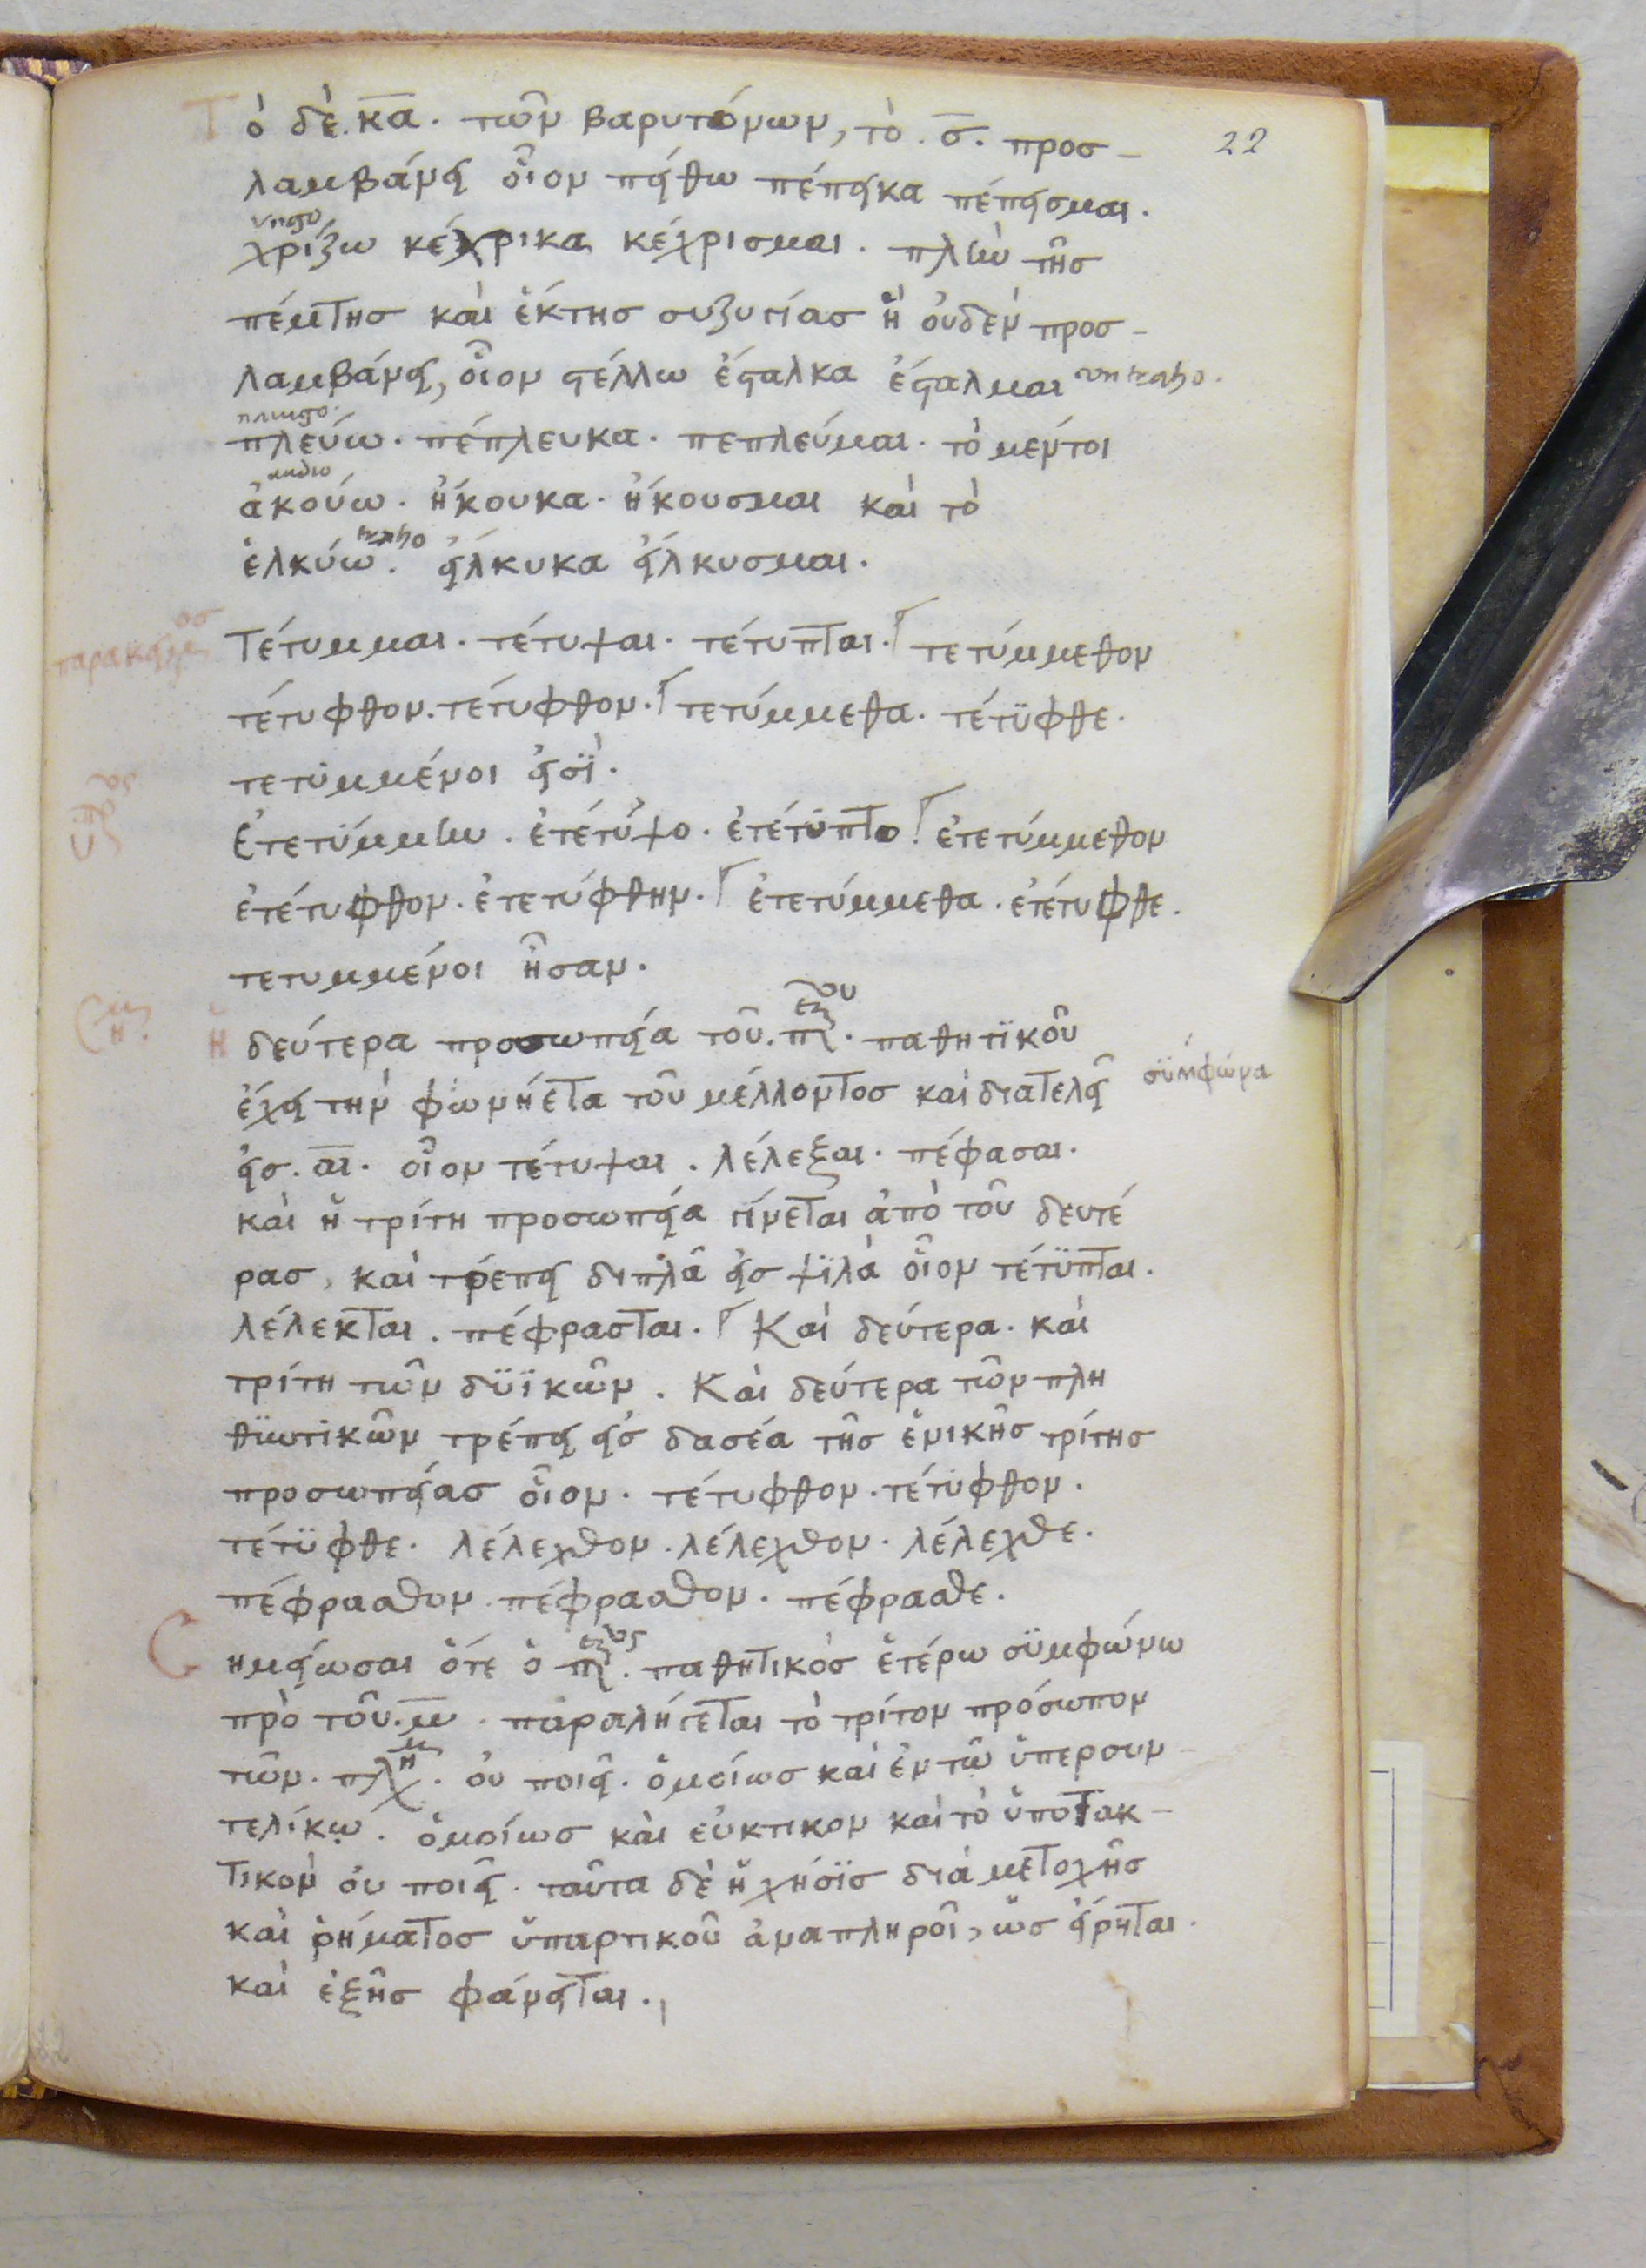 22
Τὸ δὲ. κα. τῶν βαρυτόνων, τὸ. σ. προσ-
λαμβάνει οἷον πείθω πέπεικα πέπεισμαι.
ungo
χρίζω κέχρικα κέχρισμαι. πλὴν τῆς
πέμπτης καὶ ἕκτης συζυγίας ἣ οὐδὲν προσ-
λαμβάνει, οἷον στέλλω ἔσταλκα ἔσταλμαι
πλεύω. πέπλευκα. πεπλεύμαι. τὸ μέντοι
audio
ἀκούω. ἤκουκα. ἤκουσμαι καὶ τὸ
traho
ἑλκύω. εἵλκυκα εἵλκυσμαι.
παρακείμενος
Τέτυμμαι. τέτυψαι. τέτυπται. τετύμμεθον
τέτυφθον. τέτυφθον. τετύμμεθα. τέτϋφθε.
τετϋμμένοι εἰσΐ.
Ἐτετϋμμην. ἐτέτϋψο. ἐτέτϋπτο. ἐτετύμμεθον
ἐτέτυφθον. ἐτετύφθην. ἐτετύμμεθα. ἐτέτυφθε.
τετυμμένοι ἦσαν.
Ἡ δεύτερα προσωπεία τοῦ. παθητϊκοῦ
ἔχει τὴν φωνήεντα τοῦ μέλλοντος καὶ διατελεῖ
σϋμφώνα
εἰς. αι. οἷον τέτυψαι. λέλεξαι. πέφασαι.
καὶ ἡ τρίτη προσωπεία γίνεται ἀπὸ τοῦ δευτέ
ρας, καὶ τρέπει διπλᾶ εἰς ψϊλὰ οἷον τέτϋπται.
λέλεκται. πέφρασται. Καὶ δεύτερα. καὶ
τρίτη τῶν δϋϊκῶν. Καὶ δεύτερα τῶν πλη
θϋντικῶν τρέπει εἰς δασέα τῆς ἑνικῆς τρίτης
προσωπείας οἷον. τέτυφθον. τέτϋφθον.
τέτϋφθε. λέλεχθον. λέλεχθον. λέλεχθε.
πέφρασθον. πέφρασθον. πέφρασθε.
Σημείωσαι ὅτε ὁ παθητικὸς ἑτέρω σϋμφώνω
πρὸ τοῦ. μ. παραλήγεται τὸ τρίτον πρόσωπον
τῶν. οὐ ποιεῖ. ὁμοίως καὶ ἐν τῶ ὑπερσυν-
τελίκῳ. ὁμοίως καὶ εὐκτικον καὶ τὸ ὑποτακ-
τικὸν οὐ ποιεῖ. ταῦτα δὲ ἡ χρήσϊς διὰ μετοχῆς
καὶ ῥήματος ὑπαρτικοῦ ἀναπληροῖ, ὡς εἴρηται.
καὶ ἑξῆς φάνειται.